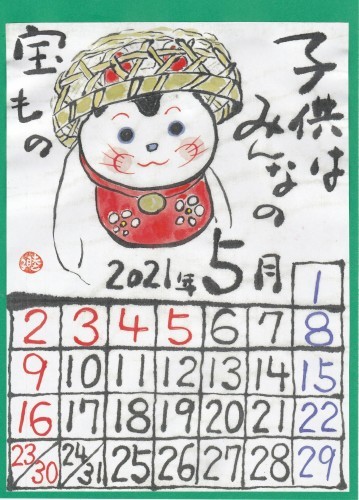 子供は
みんなの
宝もの
2021年5月
1
2 3 4 5 6 7 8
9 10 11 12 13 14 15
16 17 18 19 20 21 22
23/30 24/31 25 26 27 28 29